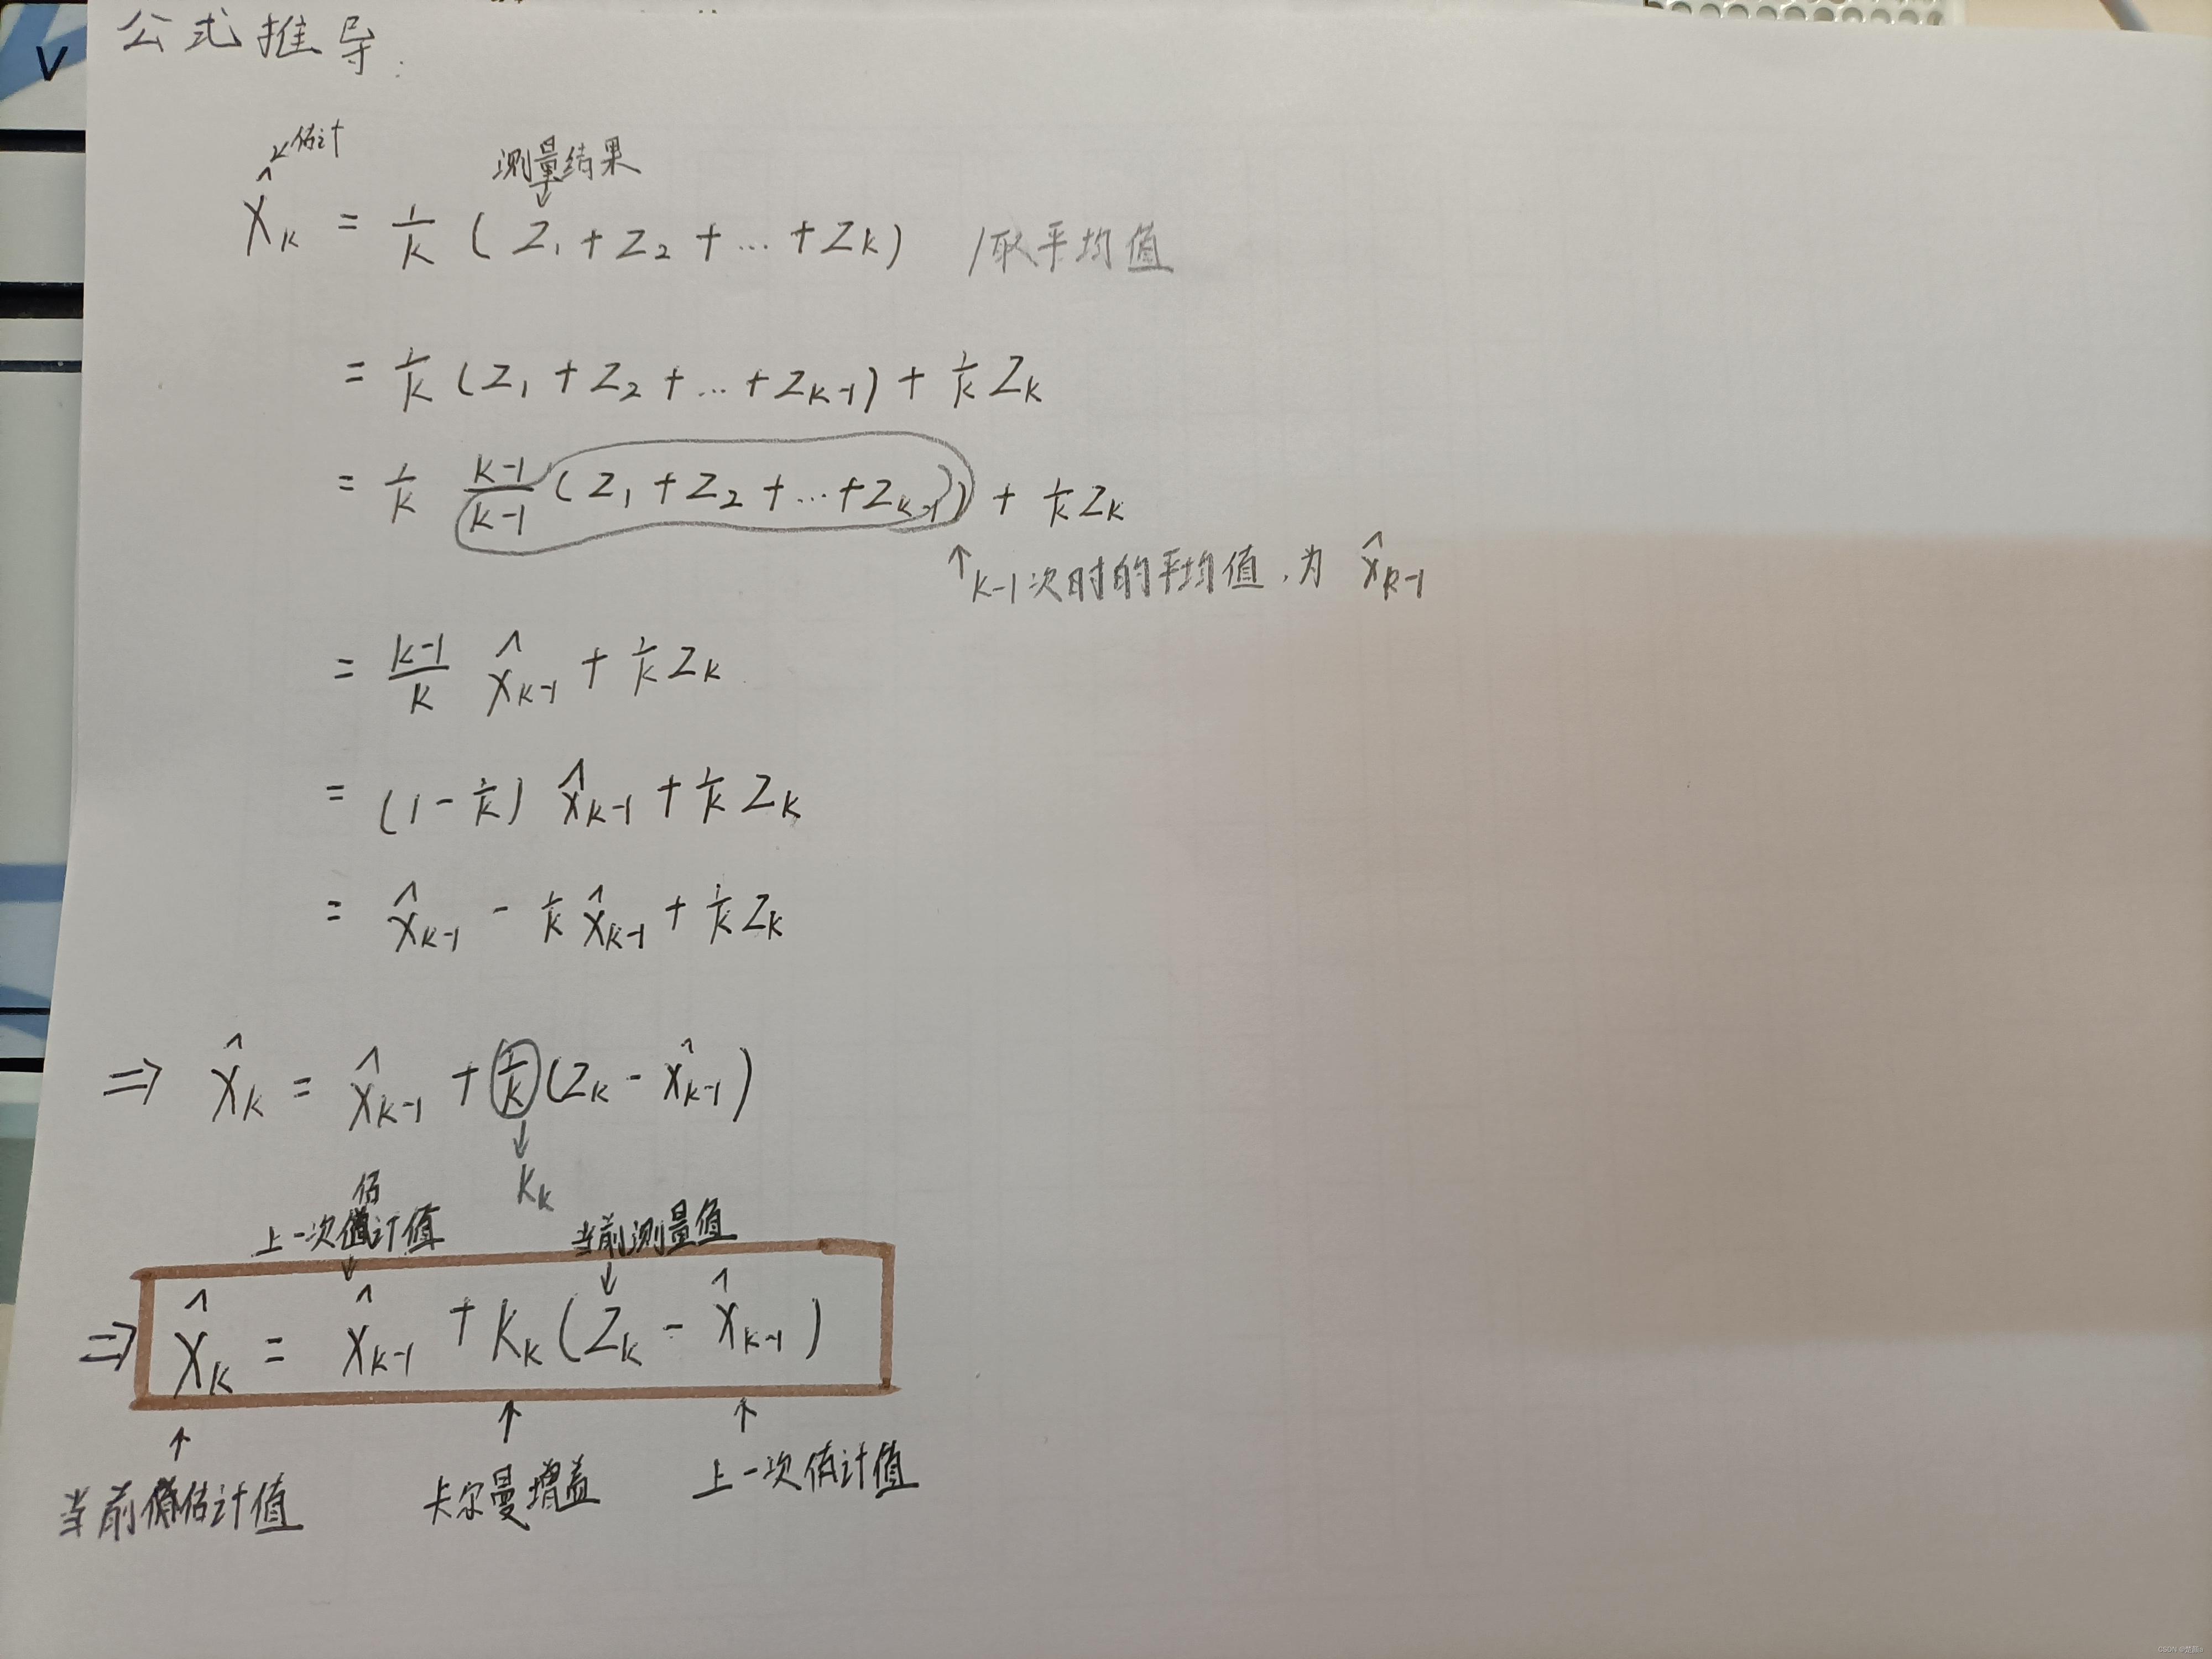 公式推导:
估计
测量结果
X̂ₖ = 1/k ( Z₁ + Z₂ + … + Zₖ ) /取平均值
= 1/k ( Z₁ + Z₂ + … + Zₖ₋₁ ) + 1/k Zₖ
= 1/k (k-1)/(k-1) ( Z₁ + Z₂ + … + Zₖ₋₁ ) + 1/k Zₖ
↑ k-1次时的平均值,为 X̂ₖ₋₁
= (k-1)/k X̂ₖ₋₁ + 1/k Zₖ
= (1 - 1/k) X̂ₖ₋₁ + 1/k Zₖ
= X̂ₖ₋₁ - 1/k X̂ₖ₋₁ + 1/k Zₖ
⇒ X̂ₖ = X̂ₖ₋₁ + 1/k ( Zₖ - X̂ₖ₋₁ )
↓
Kₖ
上一次估计值 当前测量值
⇒ X̂ₖ = X̂ₖ₋₁ + Kₖ ( Zₖ - X̂ₖ₋₁ )
↑ ↑ ↑
当前估计值 卡尔曼增益 上一次估计值